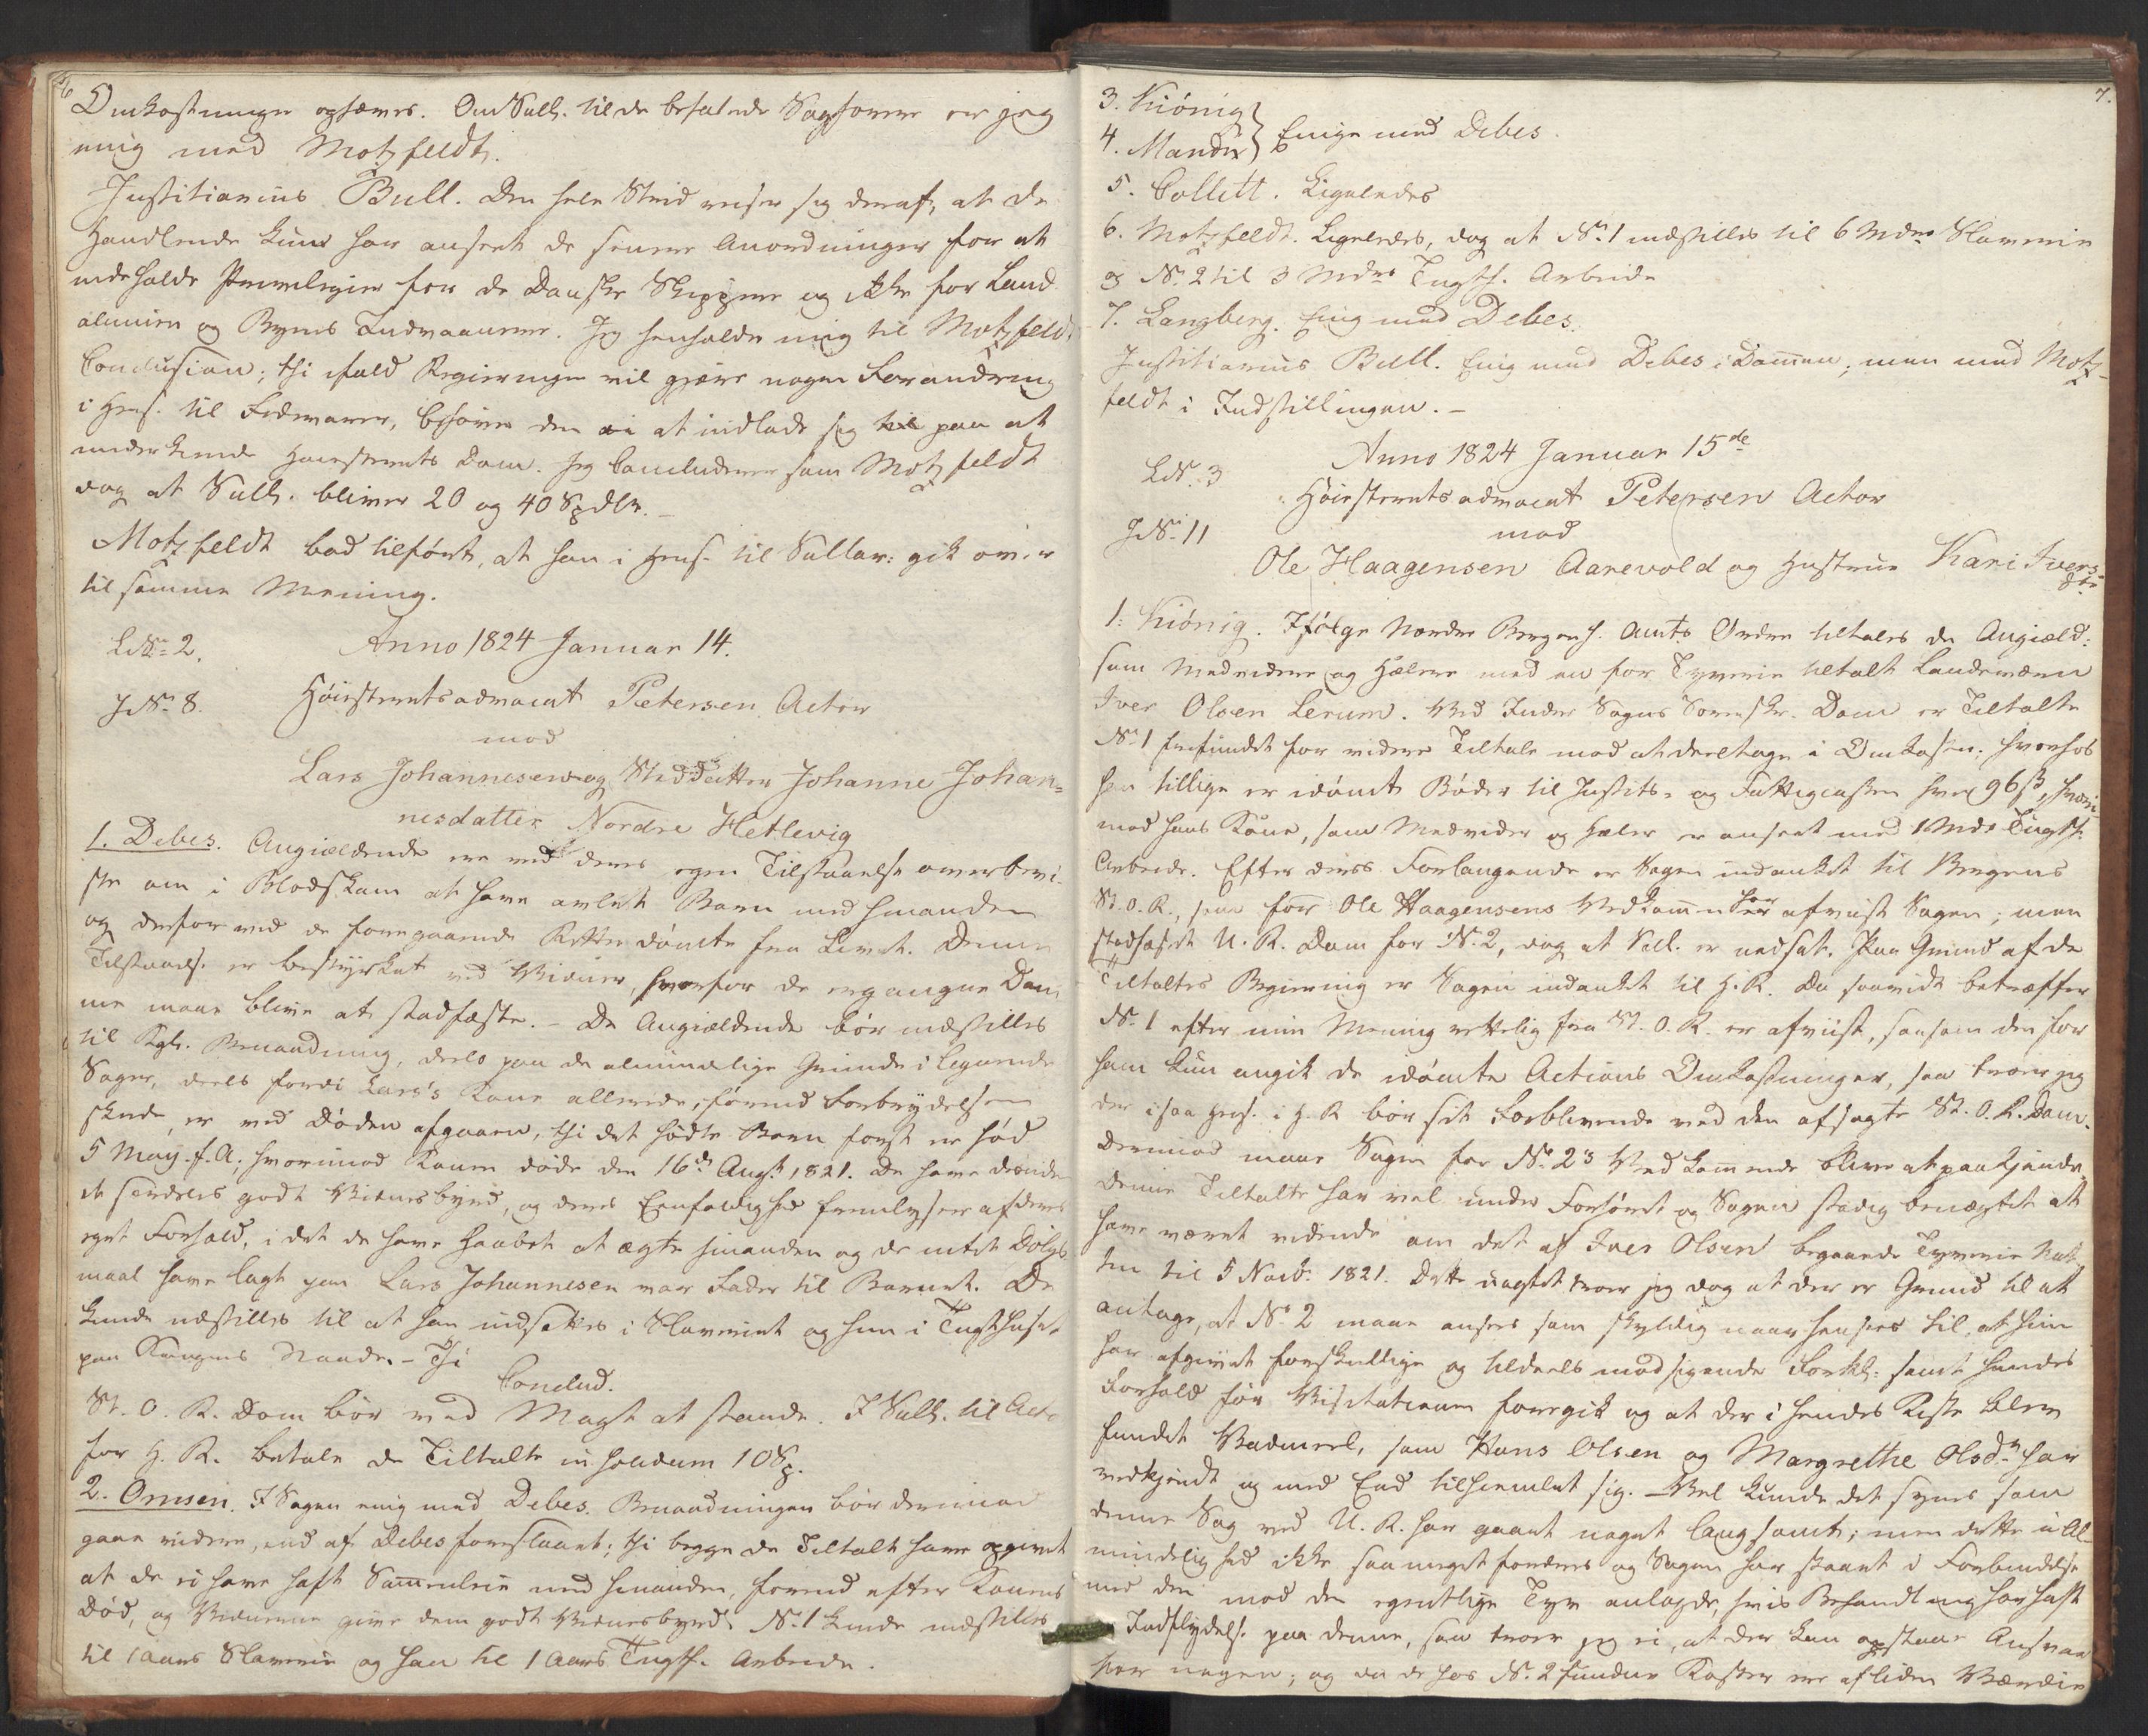 6
Omkostninger ophæves. Om Sall. til de befalede Sagførere er jeg
enig med Motzfeldt.
Justitiarius Bull. Den hele Strid reiser sig deraf, at de
Handlende kuns har anseet de senere Anordninger for at
indeholde Privilegier for de Danske Skippere og ikke for Land
almuen og Byens Indvaanere. Jeg henholder mig til Motzfeldts
Conclusion; thi ifald Regieringen vil gjøre nogen Forandring
i Hens. til Fedevarer, behøver den ei at indlade sig paa at
underkiende Høiesterets Dom. Jeg concluderer som Motzfeldt
dog at Sall. bliver 20 og 40 Spdlr. –
Motzfeldt bad tilført, at han i Hens. til Sallar: gik over
til samme Mening.
LNo 2. Anno 1824 Januar 14.
JNo 8. Høiesteretsadvocat Petersen Actor
mod
Lars Johannesen og Steddatter Johanne Johan=
nesdatter Nordre Hetlevig
1. Debes. Angiældende ere ved deres egen Tilstaaelse overbevi
ste om i Blodskam at have avlet Barn med hinanden
og derfor ved de foregaaende Retter dømte fra Livet. Denne
Tilstaaels. er bestyrket ved Vidner, hvorfor de ergangne Dom
me maae blive at stadfæste. – De Angiældende bør indstilles
til Kgl. Benaadning, deels paa de almindelige Grunde i lignende
Sager, deels fordi Lars's Kone allerede, førend Forbrydelsen
skede, er ved Døden afgaaen, thi det fødte Barn først er fød
5 May f. A., hvorimod Konen døde den 16de Augt 1821. De have desuden
et særdeles godt Vidnesbyrd, og deres Eenfoldighed fremlyser af deres
eget Forhold, i det de have haabet at ægte hinanden og de intet Dølgs
maal have lagt paa Lars Johannesen var Fader til Barnet. De
kunde indstilles til at han indsættes i Slaveriet og hun i Tugthuset
paa Kongens Naade. – Thi
Conclud.
St. O. R. Dom bør ved Magt at stande. I Sall. til Actor
for H. R. betale de Tiltalte in solidum 10 Sp.
2. Omsen. I Sagen enig med Debes. Benaadningen bør derimod
gaae videre, end af Debes foreslaaet; thi begge de Tiltalte have opgivet
at de ei have haft Sammenleie med hinanden, førend efter Konens
Død, og Vidnerne give dem godt Vidnesbyrd. No 1 kunde indstilles
til 1 Aars Slaverie og hun til 1 Aars Tugth. Arbeide.
7.
3. Kiönig
4. Mandix } Enige med Debes.
5. Collett. Ligeledes
6. Motzfeldt. Ligeledes, dog at No 1 indstilles til 6 Mdrs Slaverie
og No 2 til 3 Mdrs Tugth. Arbeide
7. Langberg. Enig med Debes.
Justitiarius Bull. Enig med Debes i Dommen; men med Motz-
feldt i Indstillingen. –
Anno 1824 Januar 15de
LNo. 3
Høiesteretsadvocat Petersen Actor
JNo 11 mod
Ole Haagensen Aarevold og Hustrue Kari Ivers-
dtr
1. Kiönig. Ifølge Nordre Bergenh. Amts Ordre tiltales de Angiæld:
som Medvidere og Hælere med en for Tyverie tiltalt Landeværn
Iver Olsen Lerum. Ved Indre Sogns Sorenskr. Dom er Tiltalte
No 1 frifundet for videre Tiltale mod at deeltage i Omkostn: hvorhos
han tillige er idømt Bøder til Justits- og Fattigcassen hver 96 ß, hvori
mod hans Kone, som Medvider og Hæler er anseet med 1 Mds Tugth.
Arbeide. Efter deres Forlangende er Sagen indanket til Bergens
St. O. R., som for Ole Haagensens Vedkommende har afviist Sagen; men
stadfæstet U. R. Dom for No. 2, dog at Sall. er nedsat. Paa Grund af de
Tiltaltes Begiering er Sagen indanket til H. R. Da saavidt betræffer
No. 1 efter min Mening rettelig fra St. O. R. er afviist, saasom den for
ham kun angik de idømte Actions Omkostninger, saa troer jeg
der i saa Hens. i H. R bør sit Forblivende ved den afsagte St. O. R. Dom.
Derimod maae Sagen for No 2s Vedkommende blive at paakjende.
Denne Tiltalte har vel under Forhøret og Sagen stadig benægtet at
have været vidende om det af Iver Olsen begaaede Tyverie Nat
ten til 5 Novbr 1821. Dette uagtet troer jeg dog at der er Grund til at
antage, at No 2 maae ansees som skyldig naar hensees til, at hun
har afgivet forskiellige og tildeels modsigende Forkl: samt hendes
Forhold før Visitationen foregik og at der i hendes Kiste blev
fundet Vadmeel, som Hans Olsen og Margrethe Olsdr har
vedkjendt og med Eed tilhiemlet sig. – Vel kunde det synes som
denne Sag ved U. R. har gaaet noget langsomt; men dette i Al-
mindelighed ikke saa meget fordres og Sagen har staaet i Forbindelse
med den mod den egentlige Tyv anlagde, hvis Behandling har haft
Indflydels. paa denne, saa troer jeg ei, at der kan opstaae Ansvar
for nogen; og da de hos No. 2 fundne Koster ere af liden Værdie